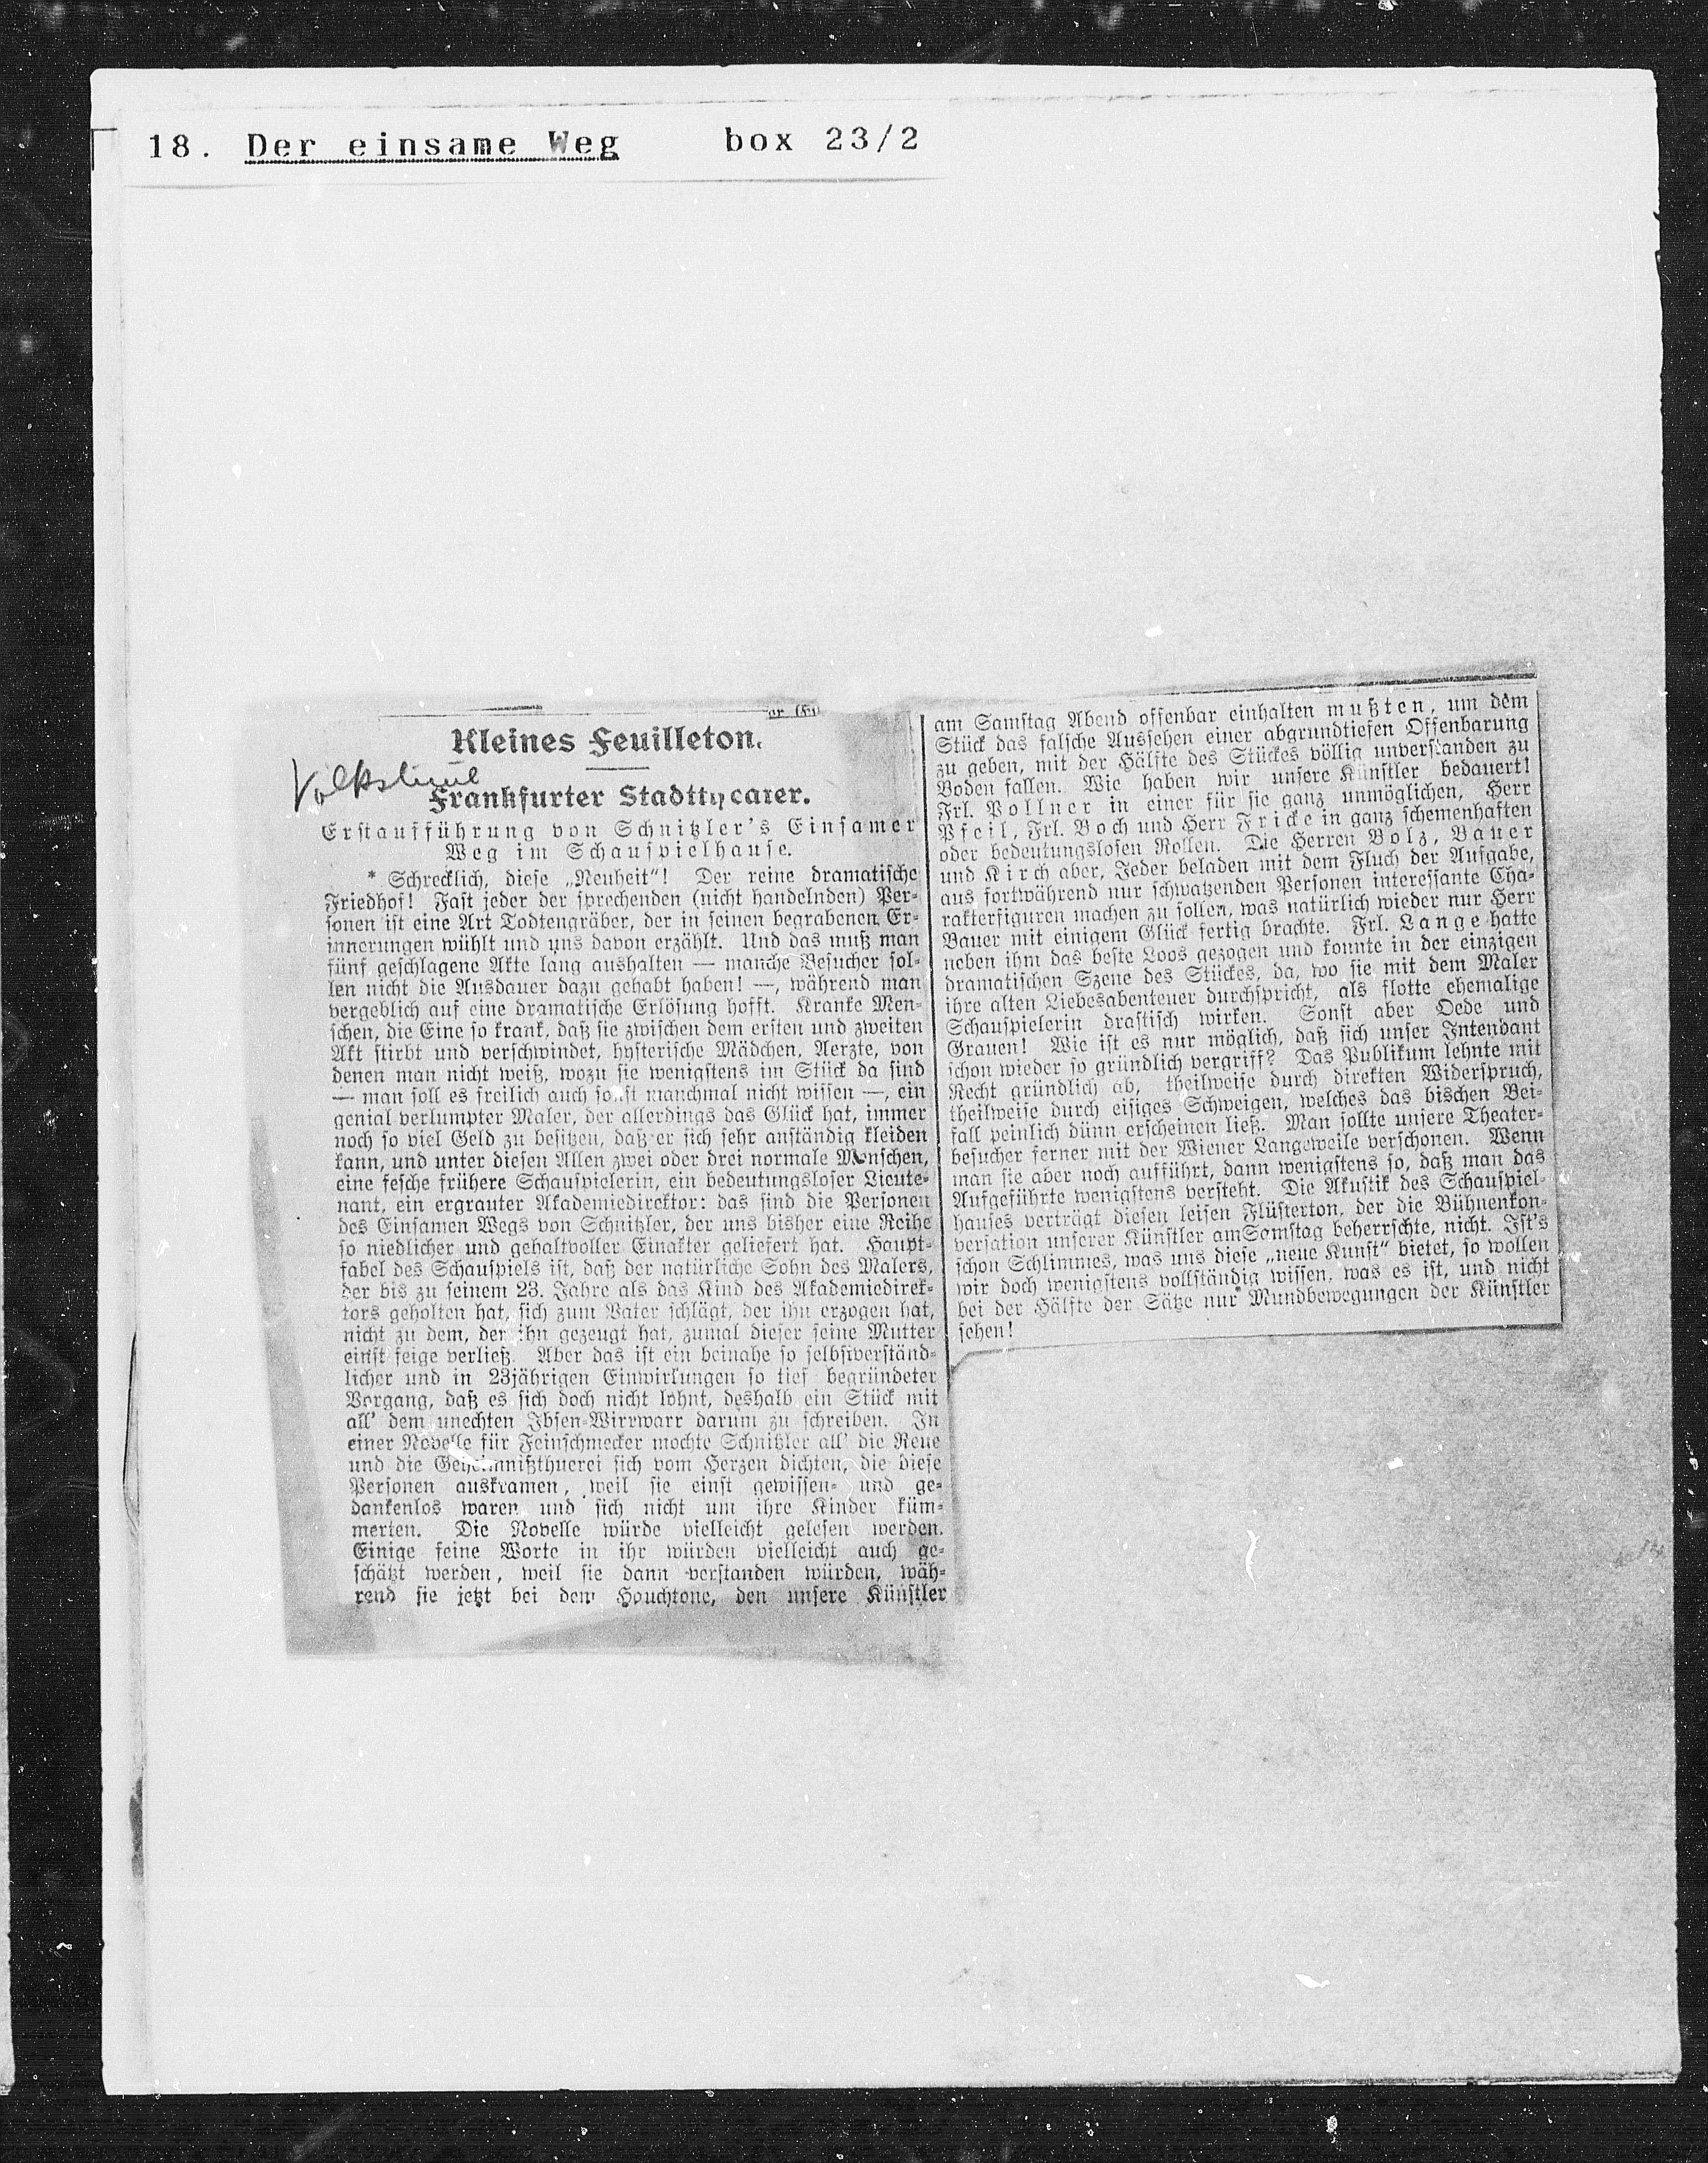 18. Der einsame Weg box 23/2
Kleines Feuilleton.
Frankfurter Stadttheater.
Erstaufführung von Schnitzler's Einsamer
Weg im Schauspielhause.
* Schrecklich, diese „Neuheit“! Der reine dramatische
Friedhof! Fast jeder der sprechenden (nicht handelnden) Per-
sonen ist eine Art Todtengräber, der in seinen begrabenen Er-
innerungen wühlt und uns davon erzählt. Und das muß man
fünf geschlagene Akte lang aushalten — manche Besucher sol-
len nicht die Ausdauer dazu gehabt haben! —, während man
vergeblich auf eine dramatische Erlösung hofft. Kranke Men-
schen, die Eine so krank, daß sie zwischen dem ersten und zweiten
Akt stirbt und verschwindet, hysterische Mädchen, Aerzte, von
denen man nicht weiß, wozu sie wenigstens im Stück da sind
— man soll es freilich auch sonst manchmal nicht wissen —, ein
genial verlumpter Maler, der allerdings das Glück hat, immer
noch so viel Geld zu besitzen, daß er sich sehr anständig kleiden
kann, und unter diesen Allen zwei oder drei normale Menschen,
eine fesche frühere Schauspielerin, ein bedeutungsloser Lieute-
nant, ein ergrauter Akademiedirektor: das sind die Personen
des Einsamen Wegs von Schnitzler, der uns bisher eine Reihe
so niedlicher und gehaltvoller Einakter geliefert hat. Haupt-
fabel des Schauspiels ist, daß der natürliche Sohn des Malers,
der bis zu seinem 23. Jahre als das Kind des Akademiedirek-
tors geholten hat, sich zum Vater schlägt, der ihn erzogen hat,
nicht zu dem, der ihn gezeugt hat, zumal dieser seine Mutter
einst feige verließ. Aber das ist ein beinahe so selbstverständ-
licher und in 23jährigen Einwirkungen so tief begründeter
Vorgang, daß es sich doch nicht lohnt, deshalb ein Stück mit
all' dem unechten Ibsen-Wirrwarr darum zu schreiben. In
einer Novelle für Feinschmecker mochte Schnitzler all' die Reue
und die Geheimnißthuerei sich vom Herzen dichten, die diese
Personen auskramen, weil sie einst gewissen- und ge-
dankenlos waren und sich nicht um ihre Kinder küm-
merten. Die Novelle würde vielleicht gelesen werden.
Einige feine Worte in ihr würden vielleicht auch ge-
schätzt werden, weil sie dann verstanden würden, wäh-
rend sie jetzt bei dem Hauchtone, den unsere Künstler
am Samstag Abend offenbar einhalten mußten, um dem
Stück das falsche Aussehen einer abgrundtiefen Offenbarung
zu geben, mit der Hälfte des Stückes völlig unverstanden zu
Boden fallen. Wie haben wir unsere Künstler bedauert!
Frl. Pollner in einer für sie ganz unmöglichen, Herr
Pfeil, Frl. Boch und Herr Fricke in ganz schemenhaften
oder bedeutungslosen Rollen. Die Herren Bolz, Bauer
und Kirch aber, Jeder beladen mit dem Fluch der Aufgabe,
aus fortwährend nur schwatzenden Personen interessante Cha-
rakterfiguren machen zu sollen, was natürlich wieder nur Herr
Bauer mit einigem Glück fertig brachte. Frl. Lange hatte
neben ihm das beste Loos gezogen und konnte in der einzigen
dramatischen Szene des Stückes, da, wo sie mit dem Maler
ihre alten Liebesabenteuer durchspricht, als flotte ehemalige
Schauspielerin drastisch wirken. Sonst aber Oede und
Grauen! Wie ist es nur möglich, daß sich unser Intendant
schon wieder so gründlich vergriff? Das Publikum lehnte mit
Recht gründlich ab, theilweise durch direkten Widerspruch,
theilweise durch eisiges Schweigen, welches das bischen Bei-
fall peinlich dünn erscheinen ließ. Man sollte unsere Theater-
besucher ferner mit der Wiener Langeweile verschonen. Wenn
man sie aber noch aufführt, dann wenigstens so, daß man das
Aufgeführte wenigstens versteht. Die Akustik des Schauspiel-
hauses verträgt diesen leisen Flüsterton, der die Bühnenkon-
versation unserer Künstler am Samstag beherrschte, nicht. Ist's
schon Schlimmes, was uns diese „neue Kunst“ bietet, so wollen
wir doch wenigstens vollständig wissen, was es ist, und nicht
bei der Hälfte der Sätze nur Mundbewegungen der Künstler
sehen!